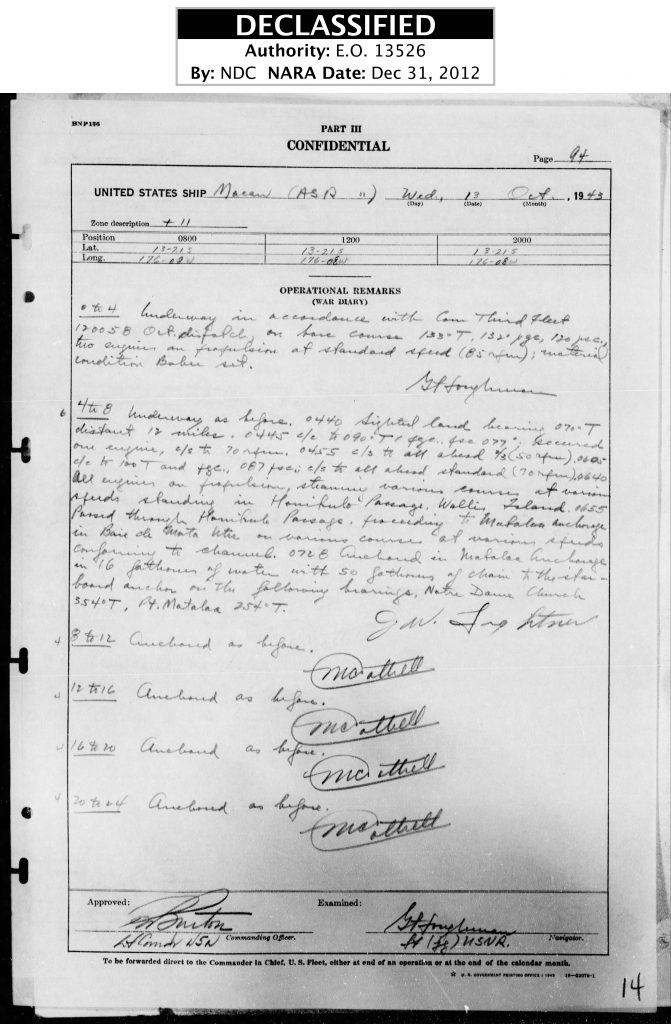 DECLASSIFIED
Authority: E.O. 13526
By: NDC NARA Date: Dec 31, 2012
BNP186
PART III
CONFIDENTIAL
Page 94
UNITED STATES SHIP Macaw (ASR 11) Wed, 13 Oct., 1943
(Day) (Date) (Month)
Zone description + 11
Position 0800 1200 2000
Lat. 13-21 S 13-21 S 13-21 S
Long. 176-08 W 176-08 W 176-08 W
OPERATIONAL REMARKS
(WAR DIARY)
0 to 4 Underway in accordance with Com Third Fleet
120058 Oct. dispatch, on base course 133° T, 132° pgc, 120 psc,
two engines on propulsion at standard speed (85 rpm); material
condition Baker set.
4 to 8 Underway as before. 0440 Sighted land bearing 070° T
distant 12 miles. 0445 c/c to 090° T & pgc, psc 077°; secured
one engine, c/s to 70 rpm. 0455 c/s to all ahead 2/3 (50 rpm), 0605
c/c to 100 T and pgc, 087 psc; c/s to all ahead standard (70 rpm), 0640
All engines on propulsion, steaming various courses at various
speeds standing in Honikulu Passage, Wallis Island. 0655
Passed through Honikulu Passage, proceeding to Matalaa anchorage
in Baie de Mata Utu on various courses at various speeds
conforming to channel. 0728 Anchored in Matalaa Anchorage
in 16 fathoms of water with 50 fathoms of chain to the star-
board anchor on the following bearings, Notre Dame Church
354° T, Pt. Matalaa 254° T.
J. W. Lightner
4 8 to 12 Anchored as before.
4 12 to 16 Anchored as before.
4 16 to 20 Anchored as before.
4 20 to 24 Anchored as before.
Approved: Examined:
Burton
Lt Comdr USN Commanding Officer. Lt (jg) USNR. Navigator.
To be forwarded direct to the Commander in Chief, U.S. Fleet, either at end of an operation or at the end of the calendar month.
☆ U. S. GOVERNMENT PRINTING OFFICE : 1943
14